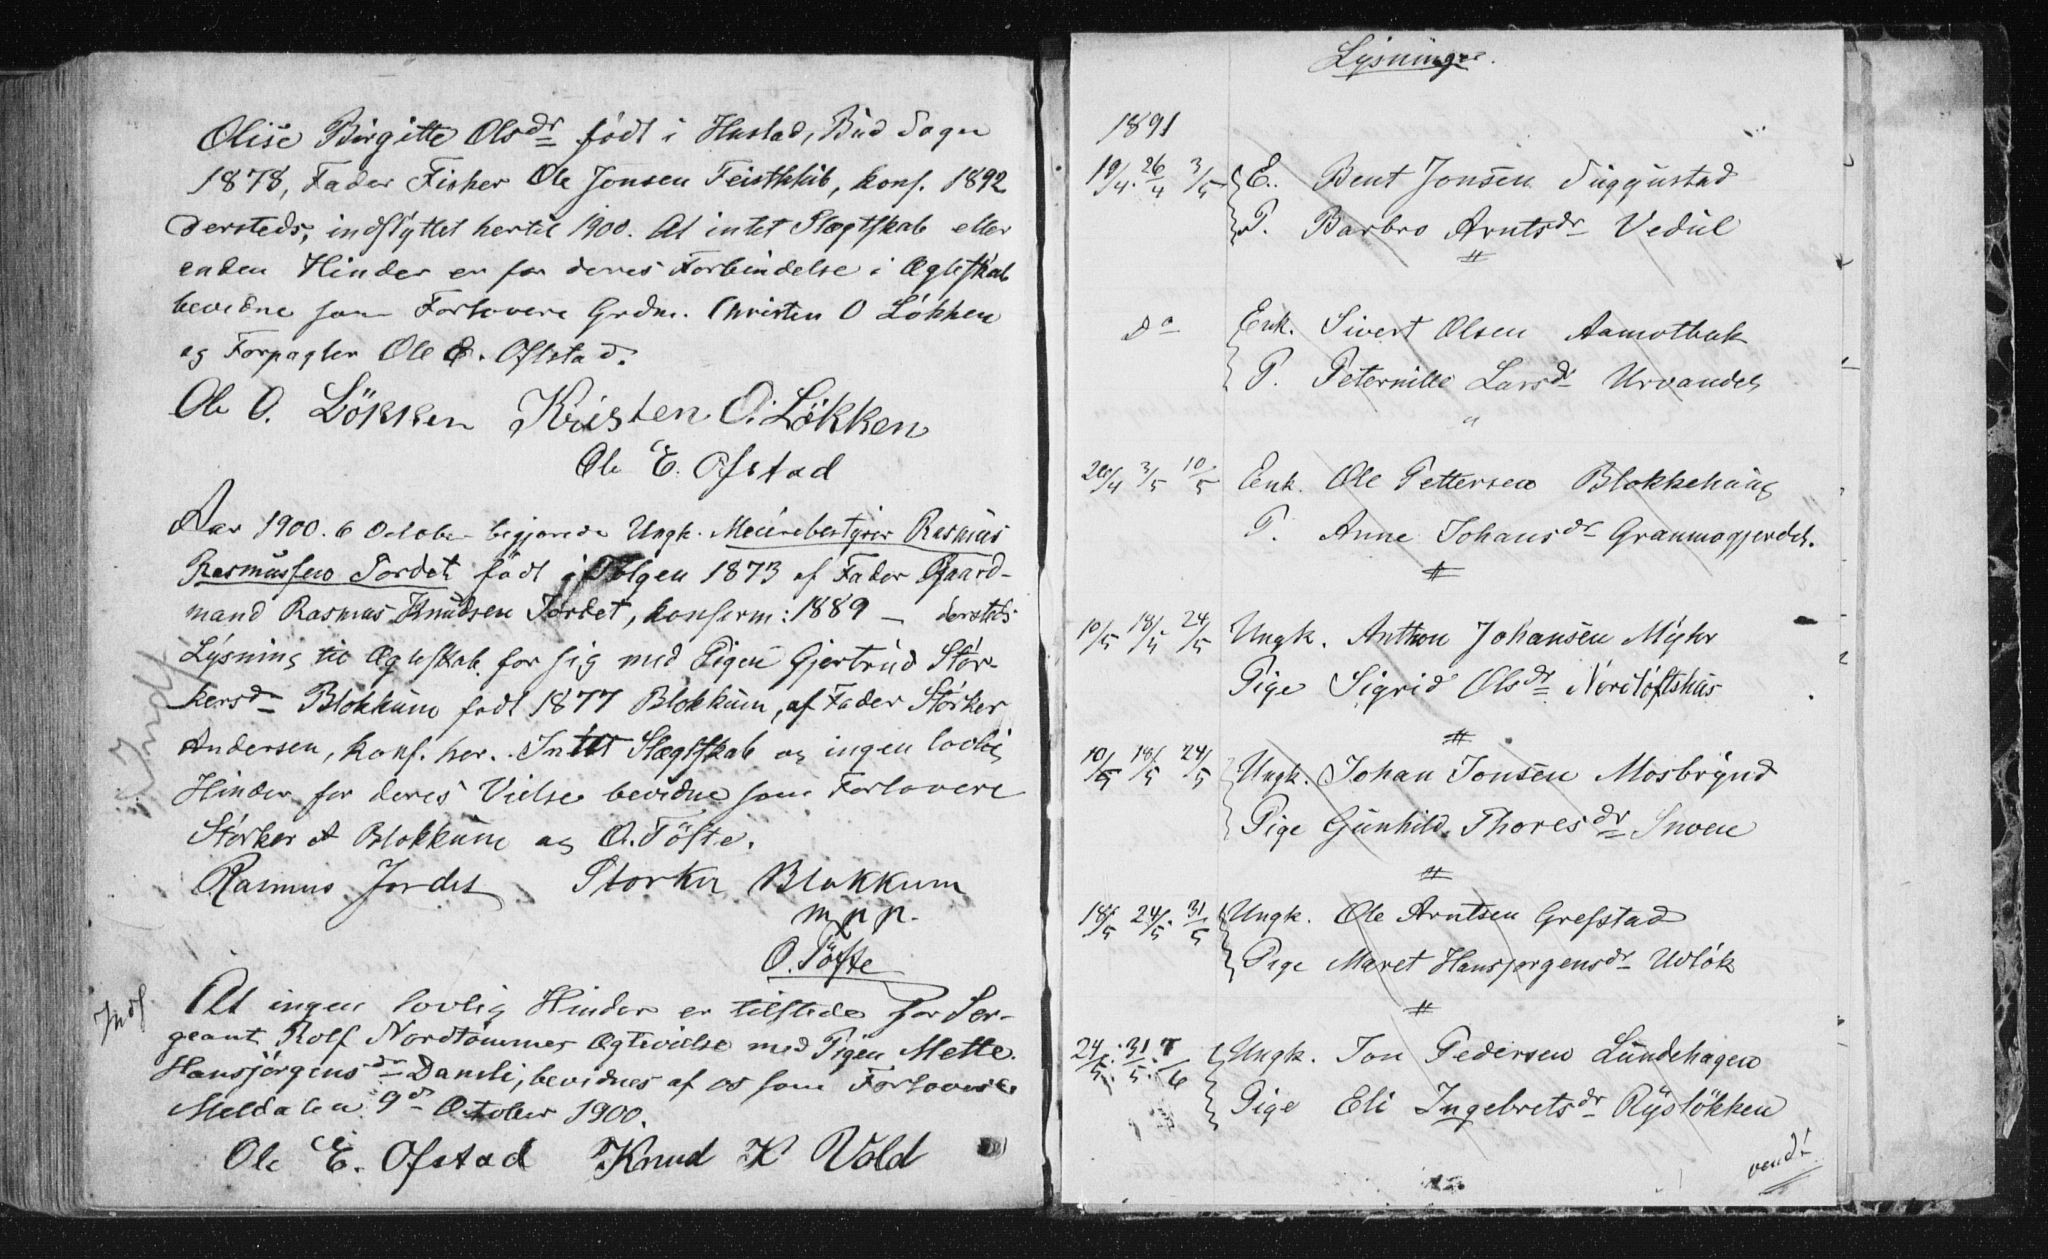 Olise Birgitte Olsdr født i Hustad, Bud Sogn
1878, Fader Fisker Ole Jonsen Teistklub, konf. 1892
dersteds, indflyttet hertil 1900. At intet Slægtskab eller
anden Hinder er for deres Forbindelse i Ægteskab
bevidne som Forlovere Grdm. Christen O Løkken
og Forpagter Ole E. Ofstad.
Ole O. Løkken Kristen O. Løkken
Ole E. Ofstad
Aar 1900. 6 October begjærede Ungk. Meieribestyrer Rasmus
Rasmussen Jordet født i Tolgen 1873 af Fader Gaard-
mand Rasmus Knudsen Jordet, konfirm: 1889 — dersteds
Lysning til Ægteskab for sig med Pigen Gjertrud Stør-
kersdr Blokkum født 1877 Blokkum, af Fader Størker
Andersen, konf. her. Intet Slægtskab og ingen lovlig
Hinder for deres Vielse bevidne som Forlovere
Størker A Blokkum og O. Tøfte.
Rasmus Jordet Storker Blokkum
m p p.
O. Tøfte
Indf
At ingen lovlig Hinder er tilstede for Ser-
geant Rolf Nordtømmes Ægtevielse med Pigen Mette
Hansjørgensdr Damli, bevidnes af os som Forlovere
Meldalen 9d October 1900.
Ole E. Ofstad Knud K Vold
Indf
Lysninger.
1891
19/4. 26/4 3/5 E. Bent Jonsen Siggustad
P. Barbro Arntsdr Vedul
"
Do Enk. Sivert Olsen Aamotbak
P. Peternille Larsdr Urvandet
"
26/4 3/5 10/5 Enk. Ole Pettersen Blokkehaug
P. Anne Johansdr Granmogjerdet.
"
10/5 18/5 24/5 Ungk. Anthon Johansen Myhr
Pige Sigrid Olsdr Nordløftshus
"
10/5 18/5 24/5 Ungk. Johan Jonsen Mosbrynd
Pige Gunhild Thoresdr Snoen
"
18/5 24/5. 31/5 Ungk. Ole Arntsen Grefstad
Pige Maret Hansjørgensdr Uvløk
"
24/5. 31/5. 7/6 Ungk. Jon Pedersen Lundehagen
Pige Eli Ingebretsdr Rysløkken
vend!